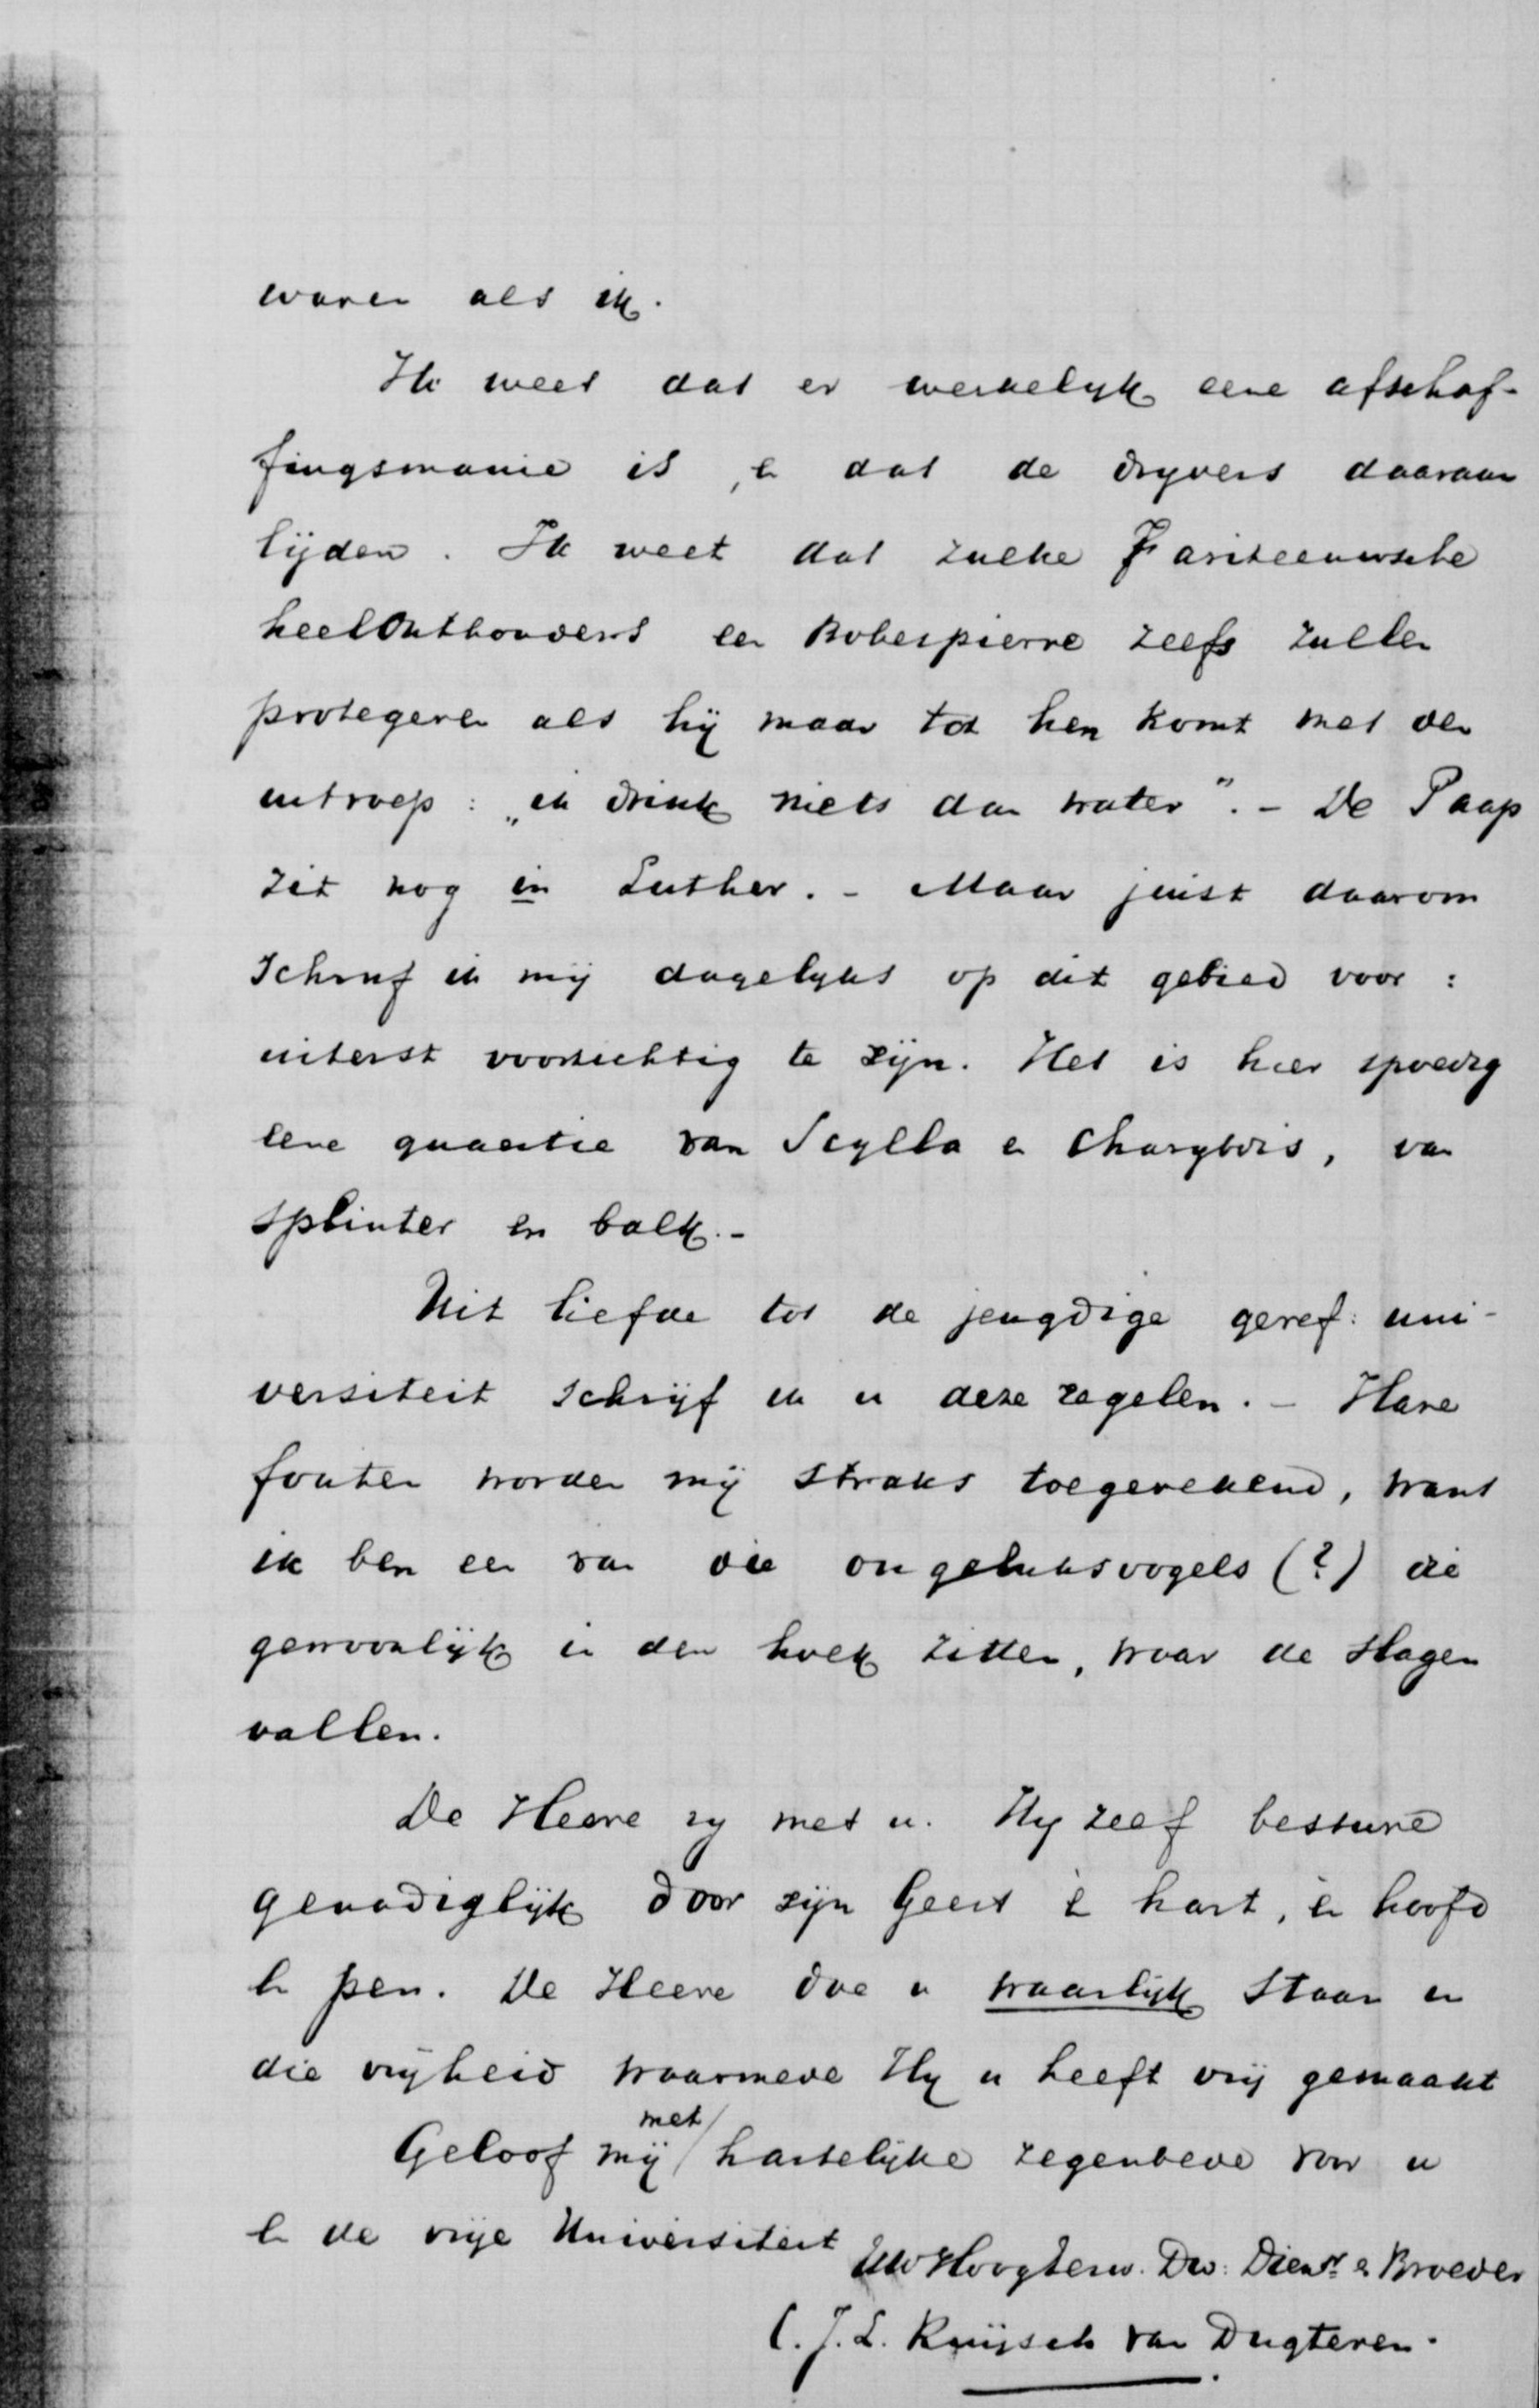 waren als ik.
Ik weet dat er werkelijk eene afschaf-
fingsmanie is, en dat de drijvers daaraan
lijden. Ik weet dat zulke Fariseeuwsche
heelonthouders een Robespierre zelfs zullen
protegeren als hij maar tot hen komt met den
uitroep: „ik drink niets dan water". - De Paap
zit nog in Luther. - Maar juist daarom
schruf ik mij dagelijks op dit gebied voor:
uiterst voorzichtig te zijn. Het is hier spoedig
eene quaestie van Scylla en Charybdis, van
splinter en balk. -
Uit liefde tot de jeugdige geref: uni-
versiteit schrijf ik u deze regelen. - Hare
fouten worden mij straks toegerekend, want
ik ben een van die ongeluksvogels (?) die
gewoonlijk in den hoek zitten, waar de slagen
vallen.
De Heere zij met u. Hij zelf besture
genadiglijk door zijn Geest én hart, én hoofd
én pen. De Heere doe u waarlijk staan in
die vrijheid waarmede Hij u heeft vrij gemaakt
Geloof mij met hartelijke zegenbede voor u
en de vrije Universiteit
Uw Hoogterw. Dw: Dienr en Broeder
C. J. L. Ruijsch van Dugteren.